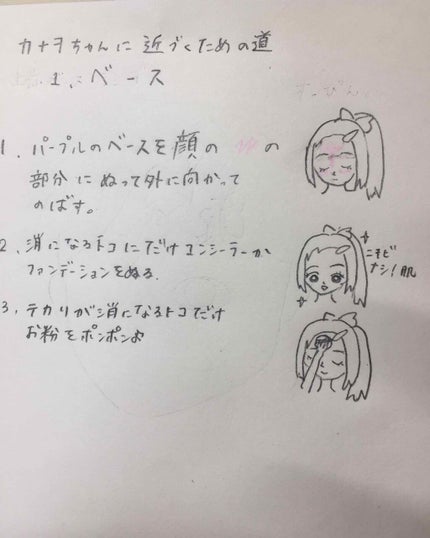 カナヲちゃんに近づくための道
1、ベース
1、パープルのベースを顔の の
部分にぬって外に向かって
のばす。
2、消になるトコにだけコンシーラーか
ファンデーションをぬる
ニキビ
ナシ!肌
3、テカリが消になるトコだけ
お粉をポンポン